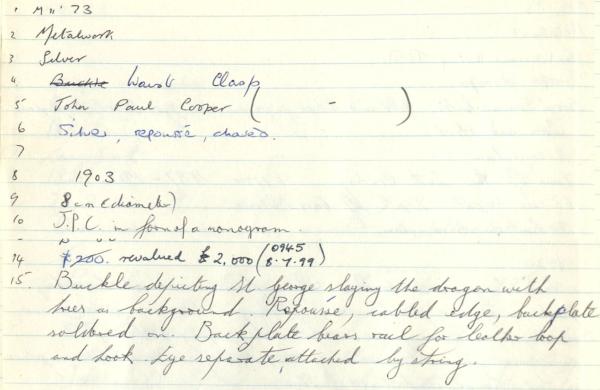 1 M11' 73
2 Metalwork
3 Silver
4 Buckle Waist Clasp
5 John Paul Cooper ( - )
6 Silver, repoussé, chased.
7
8 1903
9 8cm (diameter)
10 J.P.C. in form of a monogram.
- " "
14 £200. revalued £2,000 (0945 8.7.99)
15. Buckle depicting St George slaying the dragon with
trees as background. Repoussé, cabled edge, backplate
soldered on. Backplate bears rail for leather loop
and hook. Eye separate, attached by string.